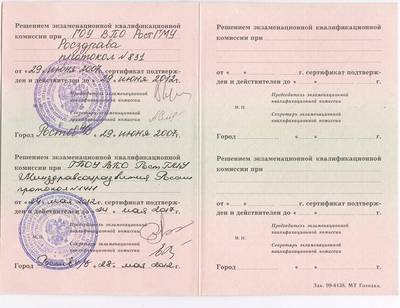 Решением экзаменационной квалификационной
комиссии при ГОУ ВПО РостГМУ
Росздрава
протокол №831
от «29 июня 2007г. сертификат подтверж-
ден и действителен до «29 июня 2012г.
Председатель экзаменационной
квалификационной комиссии
М. П.
Секретарь экзаменационной
квалификационной комиссии
Город Ростов «29 июня 2007г.
Решением экзаменационной квалификационной
комиссии при ГБОУ ВПО РостГМУ
Минздравсоцразвития России
протокол
от «28 мая 2012г. сертификат подтверж-
ден и действителен до мая 2017г.
Председатель экзаменационной
квалификационной комиссии
М. П.
Секретарь экзаменационной
квалификационной комиссии
Город Ростов «28 мая 2012г.
Решением экзаменационной квалификационной
комиссии при
от « » г. сертификат подтверж-
ден и действителен до « » г.
Председатель экзаменационной
квалификационной комиссии
М. П.
Секретарь экзаменационной
квалификационной комиссии
Город « » г.
Решением экзаменационной квалификационной
комиссии при
от « » г. сертификат подтверж-
ден и действителен до « » г.
Председатель экзаменационной
квалификационной комиссии
М. П.
Секретарь экзаменационной
квалификационной комиссии
Город « » г.
Зак. 99-6138. МТ Гознака.